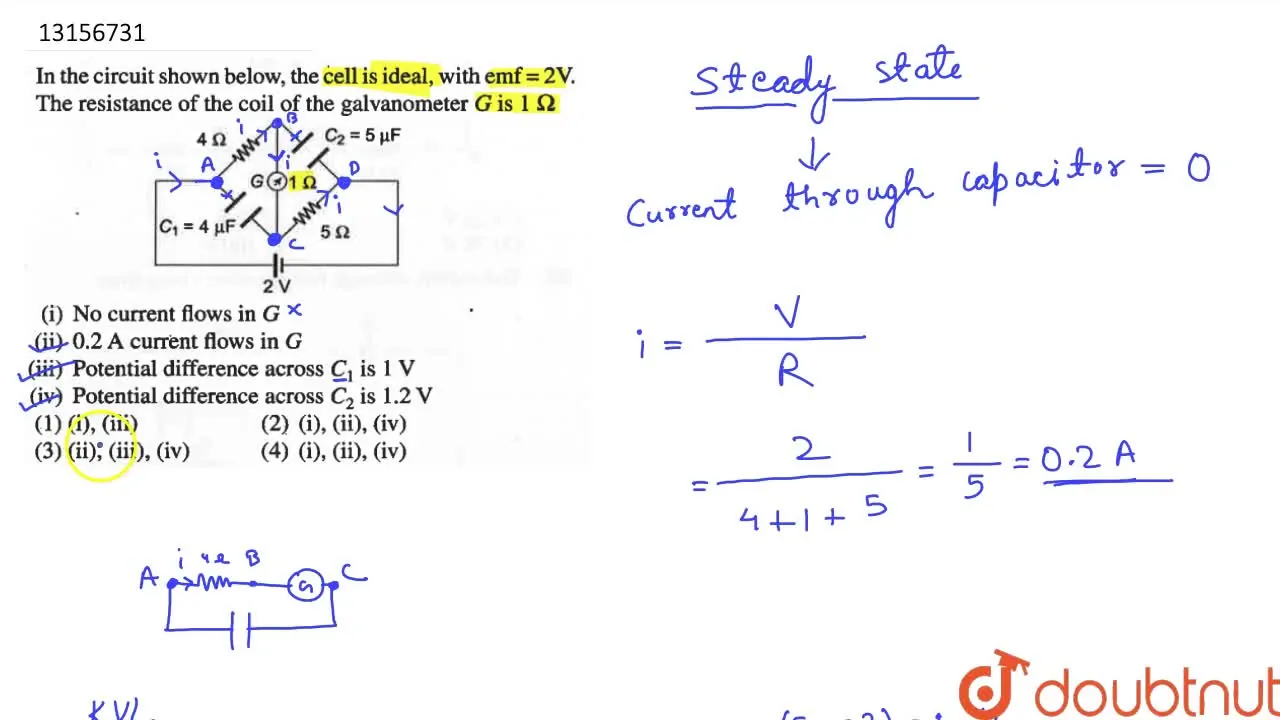 13156731
In the circuit shown below, the cell is ideal, with emf = 2V.
The resistance of the coil of the galvanometer G is 1 Ω
4 Ω
i
B
C₂ = 5 μF
i
A
x
i
D
G
1 Ω
x
i
C₁ = 4 μF
C
5 Ω
2 V
(i) No current flows in G x
(ii) 0.2 A current flows in G
(iii) Potential difference across C₁ is 1 V
(iv) Potential difference across C₂ is 1.2 V
(1) (i), (iii) (2) (i), (ii), (iv)
(3) (ii), (iii), (iv) (4) (i), (ii), (iv)
A i B G C
KVL
Steady state
↓
Current through capacitor = 0
i = V / R
= 2 / 4+1+5 = 1 / 5 = 0.2 A
doubtnut